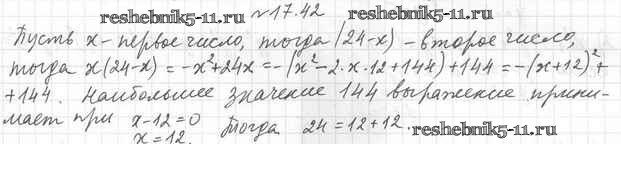 reshebnik5-11.ru №17.42 reshebnik5-11.ru
Пусть x - первое число, тогда (24-x) - второе число,
тогда x(24-x) = -x²+24x = -(x²-2·x·12+144)+144 = -(x+12)²+
+144. Наибольшее значение 144 выражение прини-
мает при x-12=0
x=12. Тогда 24=12+12. reshebnik5-11.ru